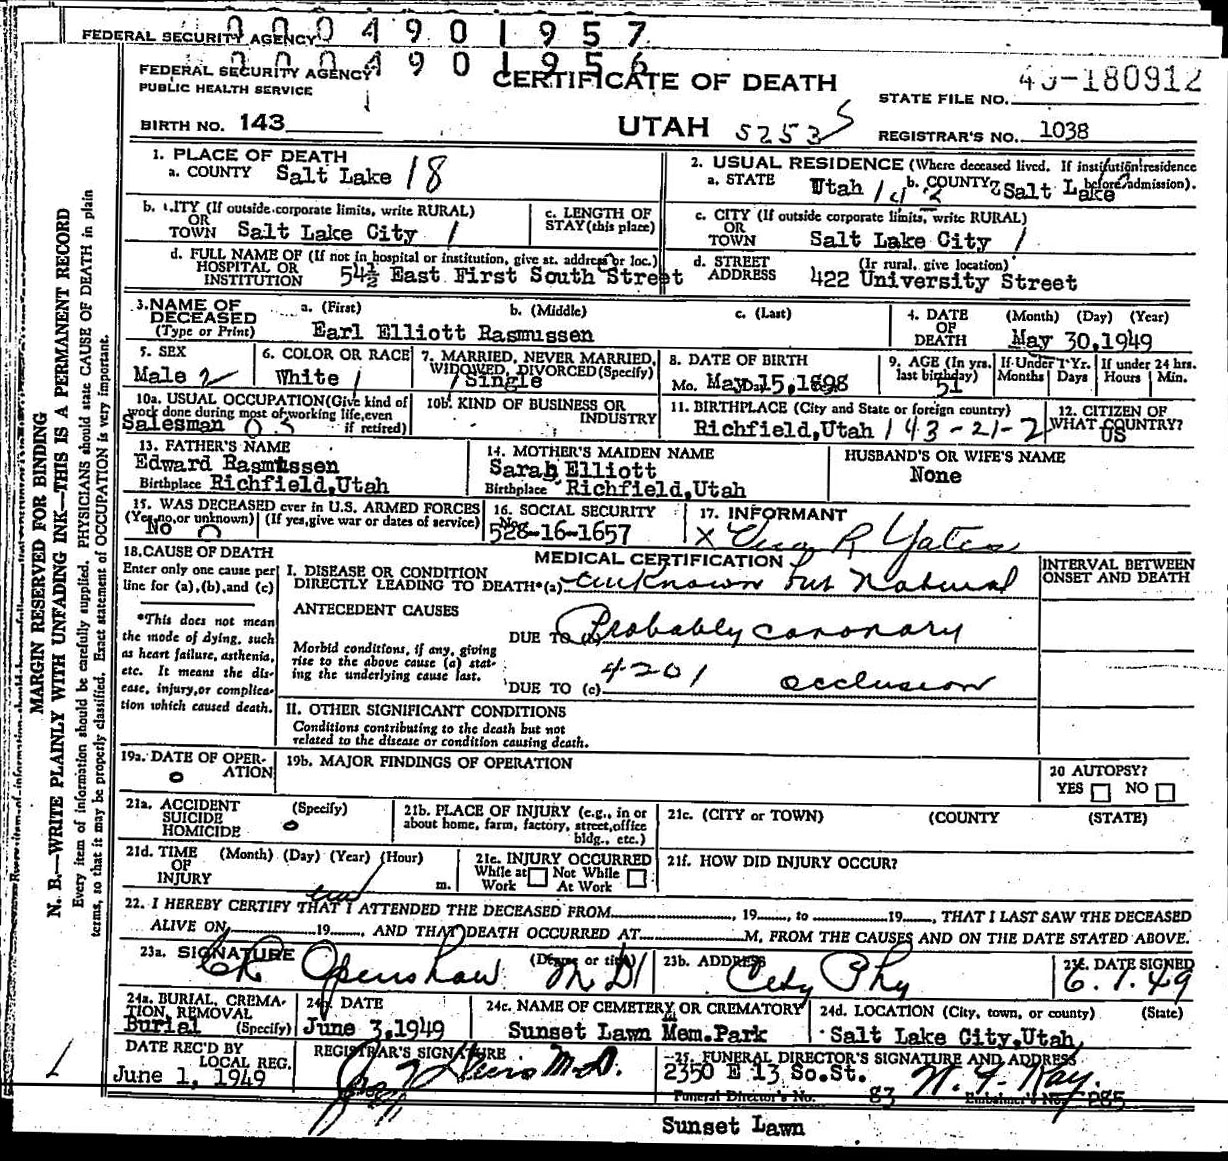 FEDERAL SECURITY AGENCY 0004901957
0004901956
FEDERAL SECURITY AGENCY
PUBLIC HEALTH SERVICE
CERTIFICATE OF DEATH
STATE FILE NO. 49-180912
BIRTH NO. 143
UTAH 5253 S
REGISTRAR'S NO. 1038
MARGIN RESERVED FOR BINDING
N. B.—WRITE PLAINLY WITH UNFADING INK—THIS IS A PERMANENT RECORD
Every item of information should be carefully supplied. PHYSICIANS should state CAUSE OF DEATH in plain
terms, so that it may be properly classified. Exact statement of OCCUPATION is very important.
1. PLACE OF DEATH
a. COUNTY Salt Lake 18
2. USUAL RESIDENCE (Where deceased lived. If institution: residence before admission).
a. STATE Utah b. COUNTY Salt Lake
b. CITY (If outside corporate limits, write RURAL)
OR
TOWN Salt Lake City 1
c. LENGTH OF
STAY (this place)
c. CITY (If outside corporate limits, write RURAL)
OR
TOWN Salt Lake City 1
d. FULL NAME OF (If not in hospital or institution, give st. address or loc.)
HOSPITAL OR
INSTITUTION 54½ East First South Street
d. STREET (If rural, give location)
ADDRESS 422 University Street
3. NAME OF
DECEASED
(Type or Print)
a. (First) b. (Middle) c. (Last)
Earl Elliott Rasmussen
4. DATE
OF
DEATH
(Month) (Day) (Year)
May 30,1949
5. SEX
Male 2
6. COLOR OR RACE
White 1
7. MARRIED, NEVER MARRIED,
WIDOWED, DIVORCED (Specify)
1 Single
8. DATE OF BIRTH
Mo. May 15,1898
9. AGE (In yrs.
last birthday)
51
If Under 1 Yr.
Months Days
If under 24 hrs.
Hours Min.
10a. USUAL OCCUPATION (Give kind of
work done during most of working life, even
if retired)
Salesman
10b. KIND OF BUSINESS OR
INDUSTRY
11. BIRTHPLACE (City and State or foreign country)
Richfield,Utah 143-21-2
12. CITIZEN OF
WHAT COUNTRY?
US
13. FATHER'S NAME
Edward Rasmussen
Birthplace Richfield,Utah
14. MOTHER'S MAIDEN NAME
Sarah Elliott
Birthplace Richfield,Utah
HUSBAND'S OR WIFE'S NAME
None
15. WAS DECEASED ever in U.S. ARMED FORCES
(Yes, no, or unknown) (If yes, give war or dates of service)
No 0
16. SOCIAL SECURITY
No.
528-16-1657
17. INFORMANT
X R Yates
18. CAUSE OF DEATH
Enter only one cause per
line for (a), (b), and (c)
*This does not mean
the mode of dying, such
as heart failure, asthenia,
etc. It means the dis-
ease, injury, or complica-
tion which caused death.
MEDICAL CERTIFICATION
INTERVAL BETWEEN
ONSET AND DEATH
I. DISEASE OR CONDITION
DIRECTLY LEADING TO DEATH*(a) unknown but Natural
ANTECEDENT CAUSES
DUE TO (b) Probably coronary
Morbid conditions, if any, giving
rise to the above cause (a) stat-
ing the underlying cause last.
4201
DUE TO (c) occlusion
II. OTHER SIGNIFICANT CONDITIONS
Conditions contributing to the death but not
related to the disease or condition causing death.
19a. DATE OF OPER-
ATION
0
19b. MAJOR FINDINGS OF OPERATION
20 AUTOPSY?
YES NO
21a. ACCIDENT
SUICIDE
HOMICIDE
(Specify)
0
21b. PLACE OF INJURY (e.g., in or
about home, farm, factory, street, office
bldg., etc.)
21c. (CITY or TOWN) (COUNTY (STATE)
21d. TIME
OF
INJURY
(Month) (Day) (Year) (Hour)
m.
21e. INJURY OCCURRED
While at Work Not While At Work
21f. HOW DID INJURY OCCUR?
22. I HEREBY CERTIFY THAT I ATTENDED THE DECEASED FROM, 19, to 19, THAT I LAST SAW THE DECEASED
ALIVE ON 19, AND THAT DEATH OCCURRED AT M, FROM THE CAUSES AND ON THE DATE STATED ABOVE.
23a. SIGNATURE (Degree or title)
Openshaw M D
23b. ADDRESS
City Phy
23c. DATE SIGNED
6.1.49
24a. BURIAL, CREMA-
TION, REMOVAL
Burial (Specify)
24b. DATE
June 3,1949
24c. NAME OF CEMETERY OR CREMATORY
Sunset Lawn Mem.Park
24d. LOCATION (City, town, or county) (State)
Salt Lake City,Utah
DATE REC'D BY
LOCAL REG.
June 1, 1949
REGISTRAR'S SIGNATURE
M.D.
25. FUNERAL DIRECTOR'S SIGNATURE AND ADDRESS
2350 E 13 So.St.
Funeral Director's No. 83 Embalmer's No.
Sunset Lawn